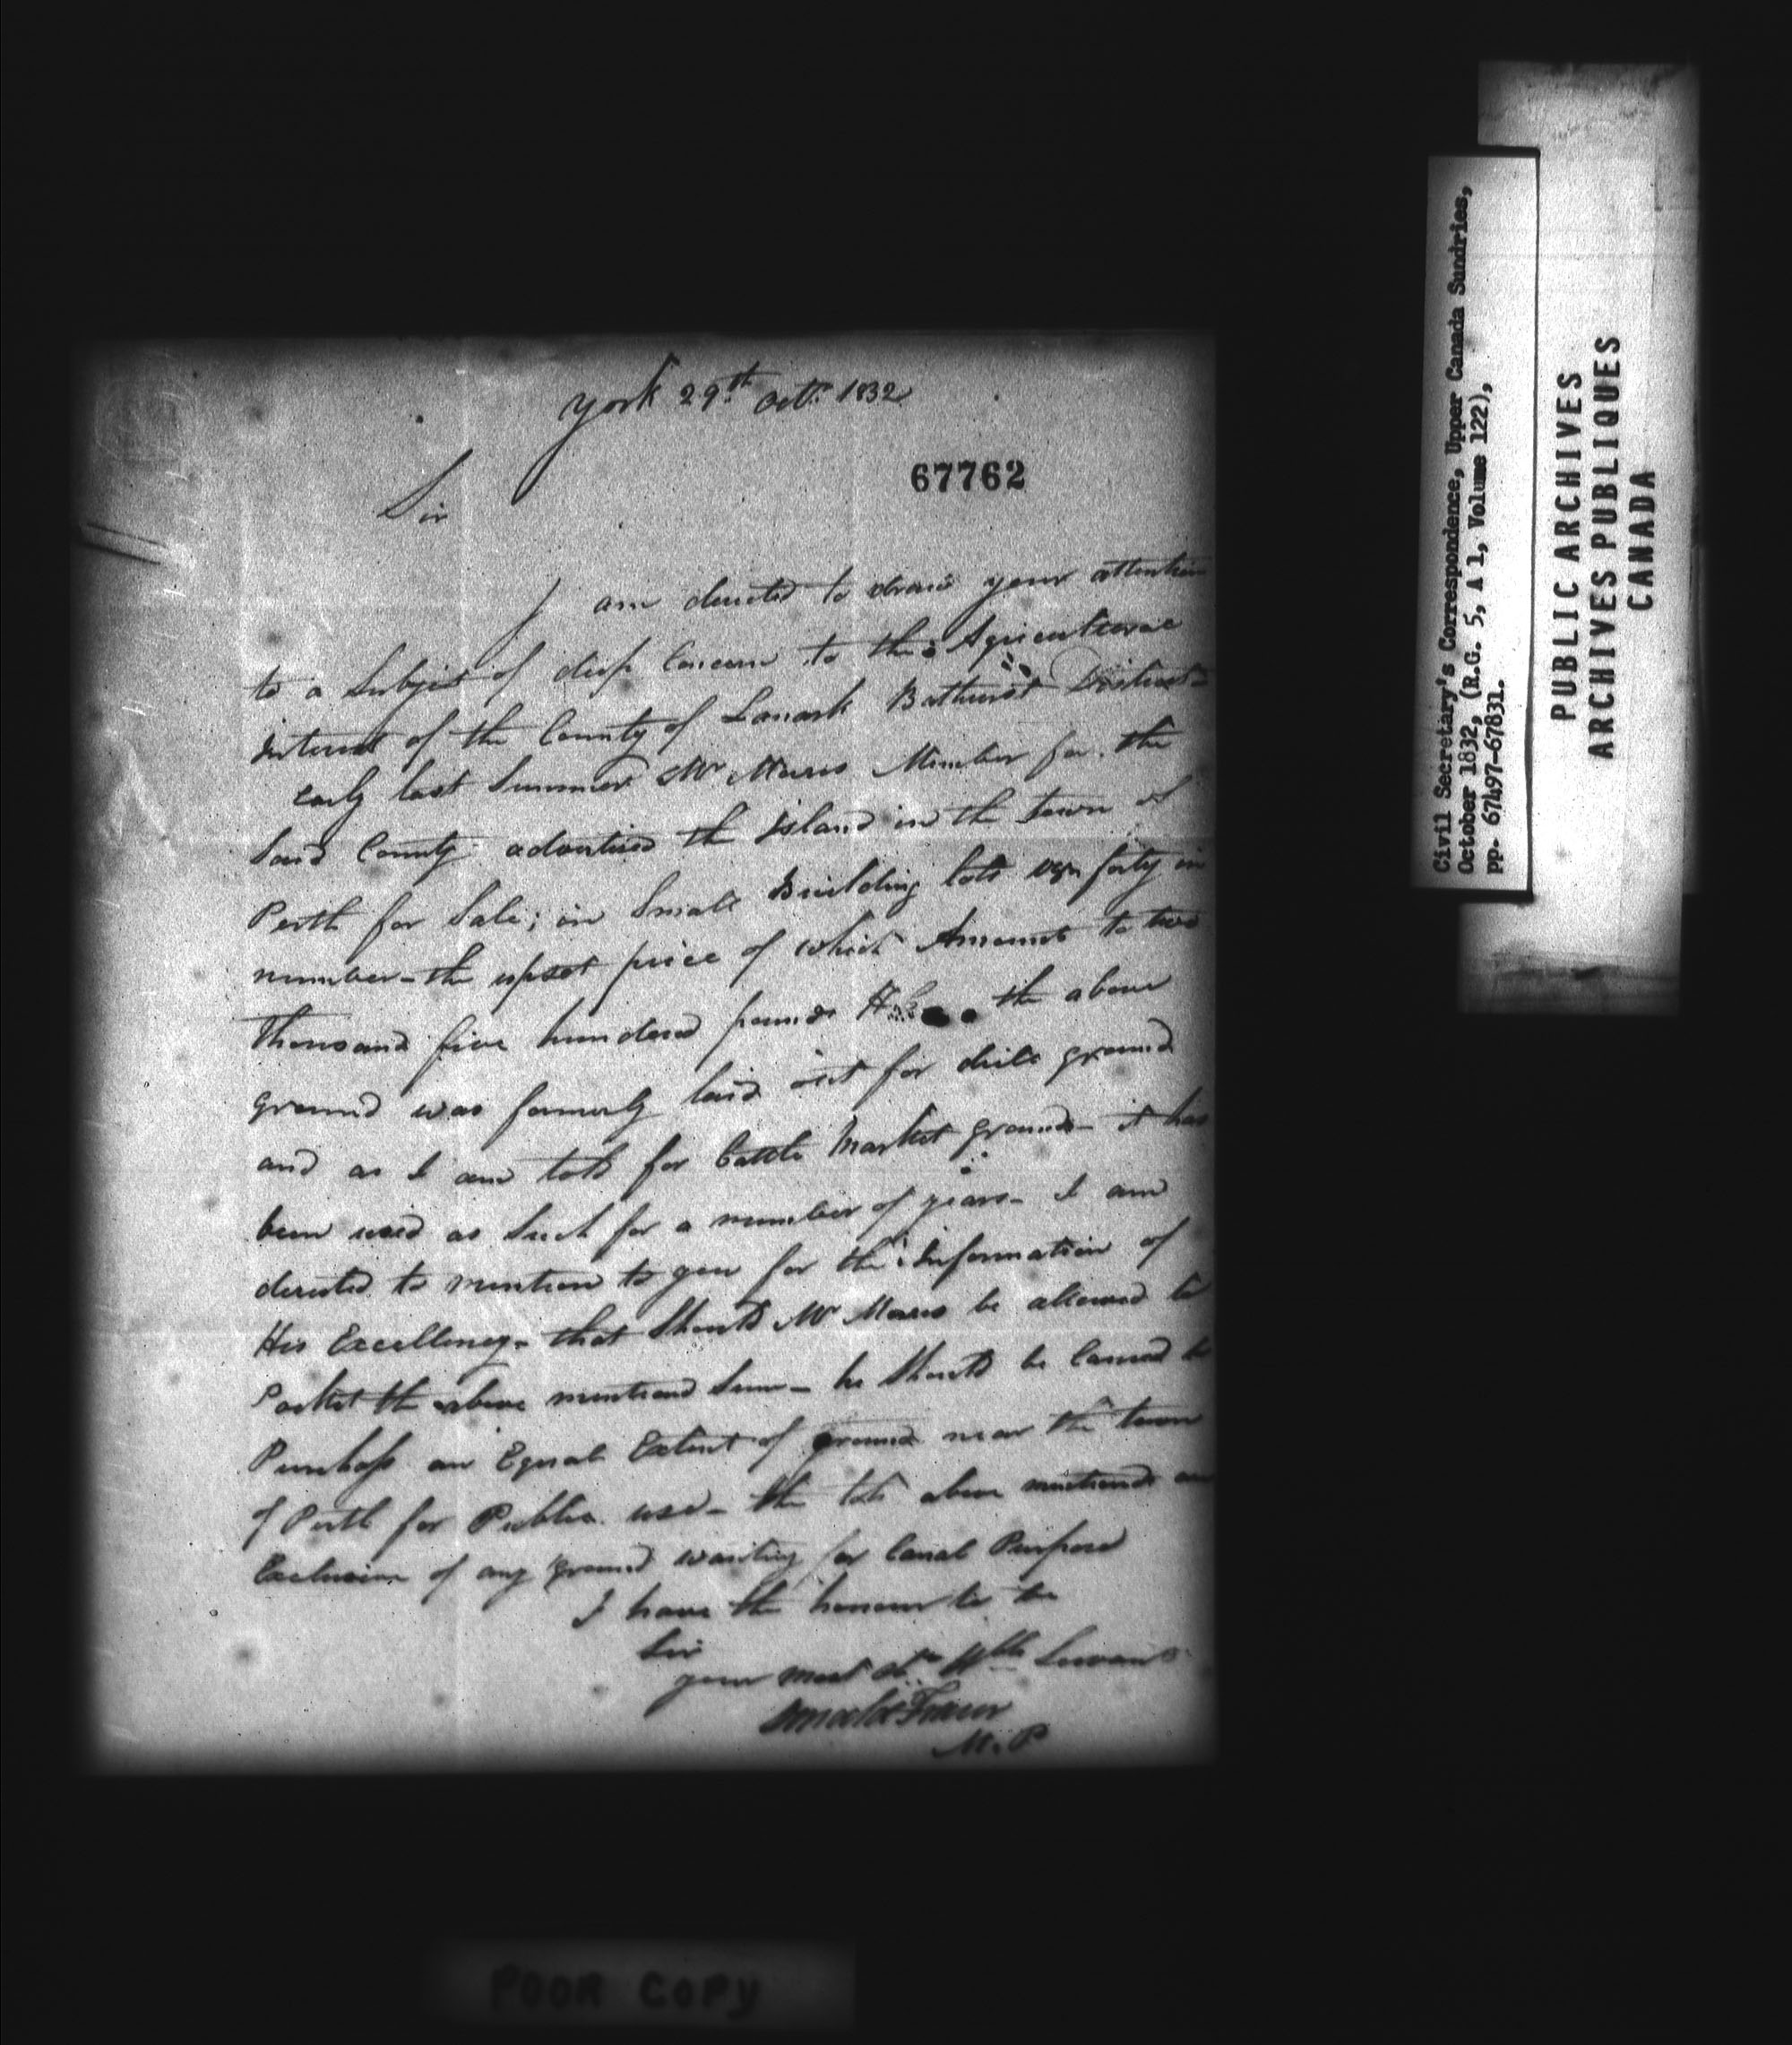 York 29th Octr 1832
67762
Sir
I am directed to draw your attention
to a Subject of deep Concern to the Agricultural
Interest of the County of Lanark Bathurst District
early last Summer Mr Moris Member for the
Said County advertised the Island in the town of
Perth for Sale; in Small Building lots forty in
number - the upset price of which Amount to two
Thousand five hundered pounds the above
ground was formerly laid out for drile ground
and as I am told for Cattle Market ground - it has
been used as Such for a number of years - I am
derected to mention to you for the Information of
His Excellency - that Should Mr Moris be allowed to
Pocket the above mentioned Sum - he Should be Caused to
Purchase an Equal Extent of ground near the town
of Perth for Public use - the lots above mentioned are
Exclusive of any ground wanting for Canal Purpose
I have the honour to be
Sir
your most obt Hble Servant
Donald Fraser
M.P
Civil Secretary's Correspondence, Upper Canada Sundries,
October 1832, (R.G. 5, A 1, Volume 122),
pp. 67497-67831.
PUBLIC ARCHIVES
ARCHIVES PUBLIQUES
CANADA
POOR COPY